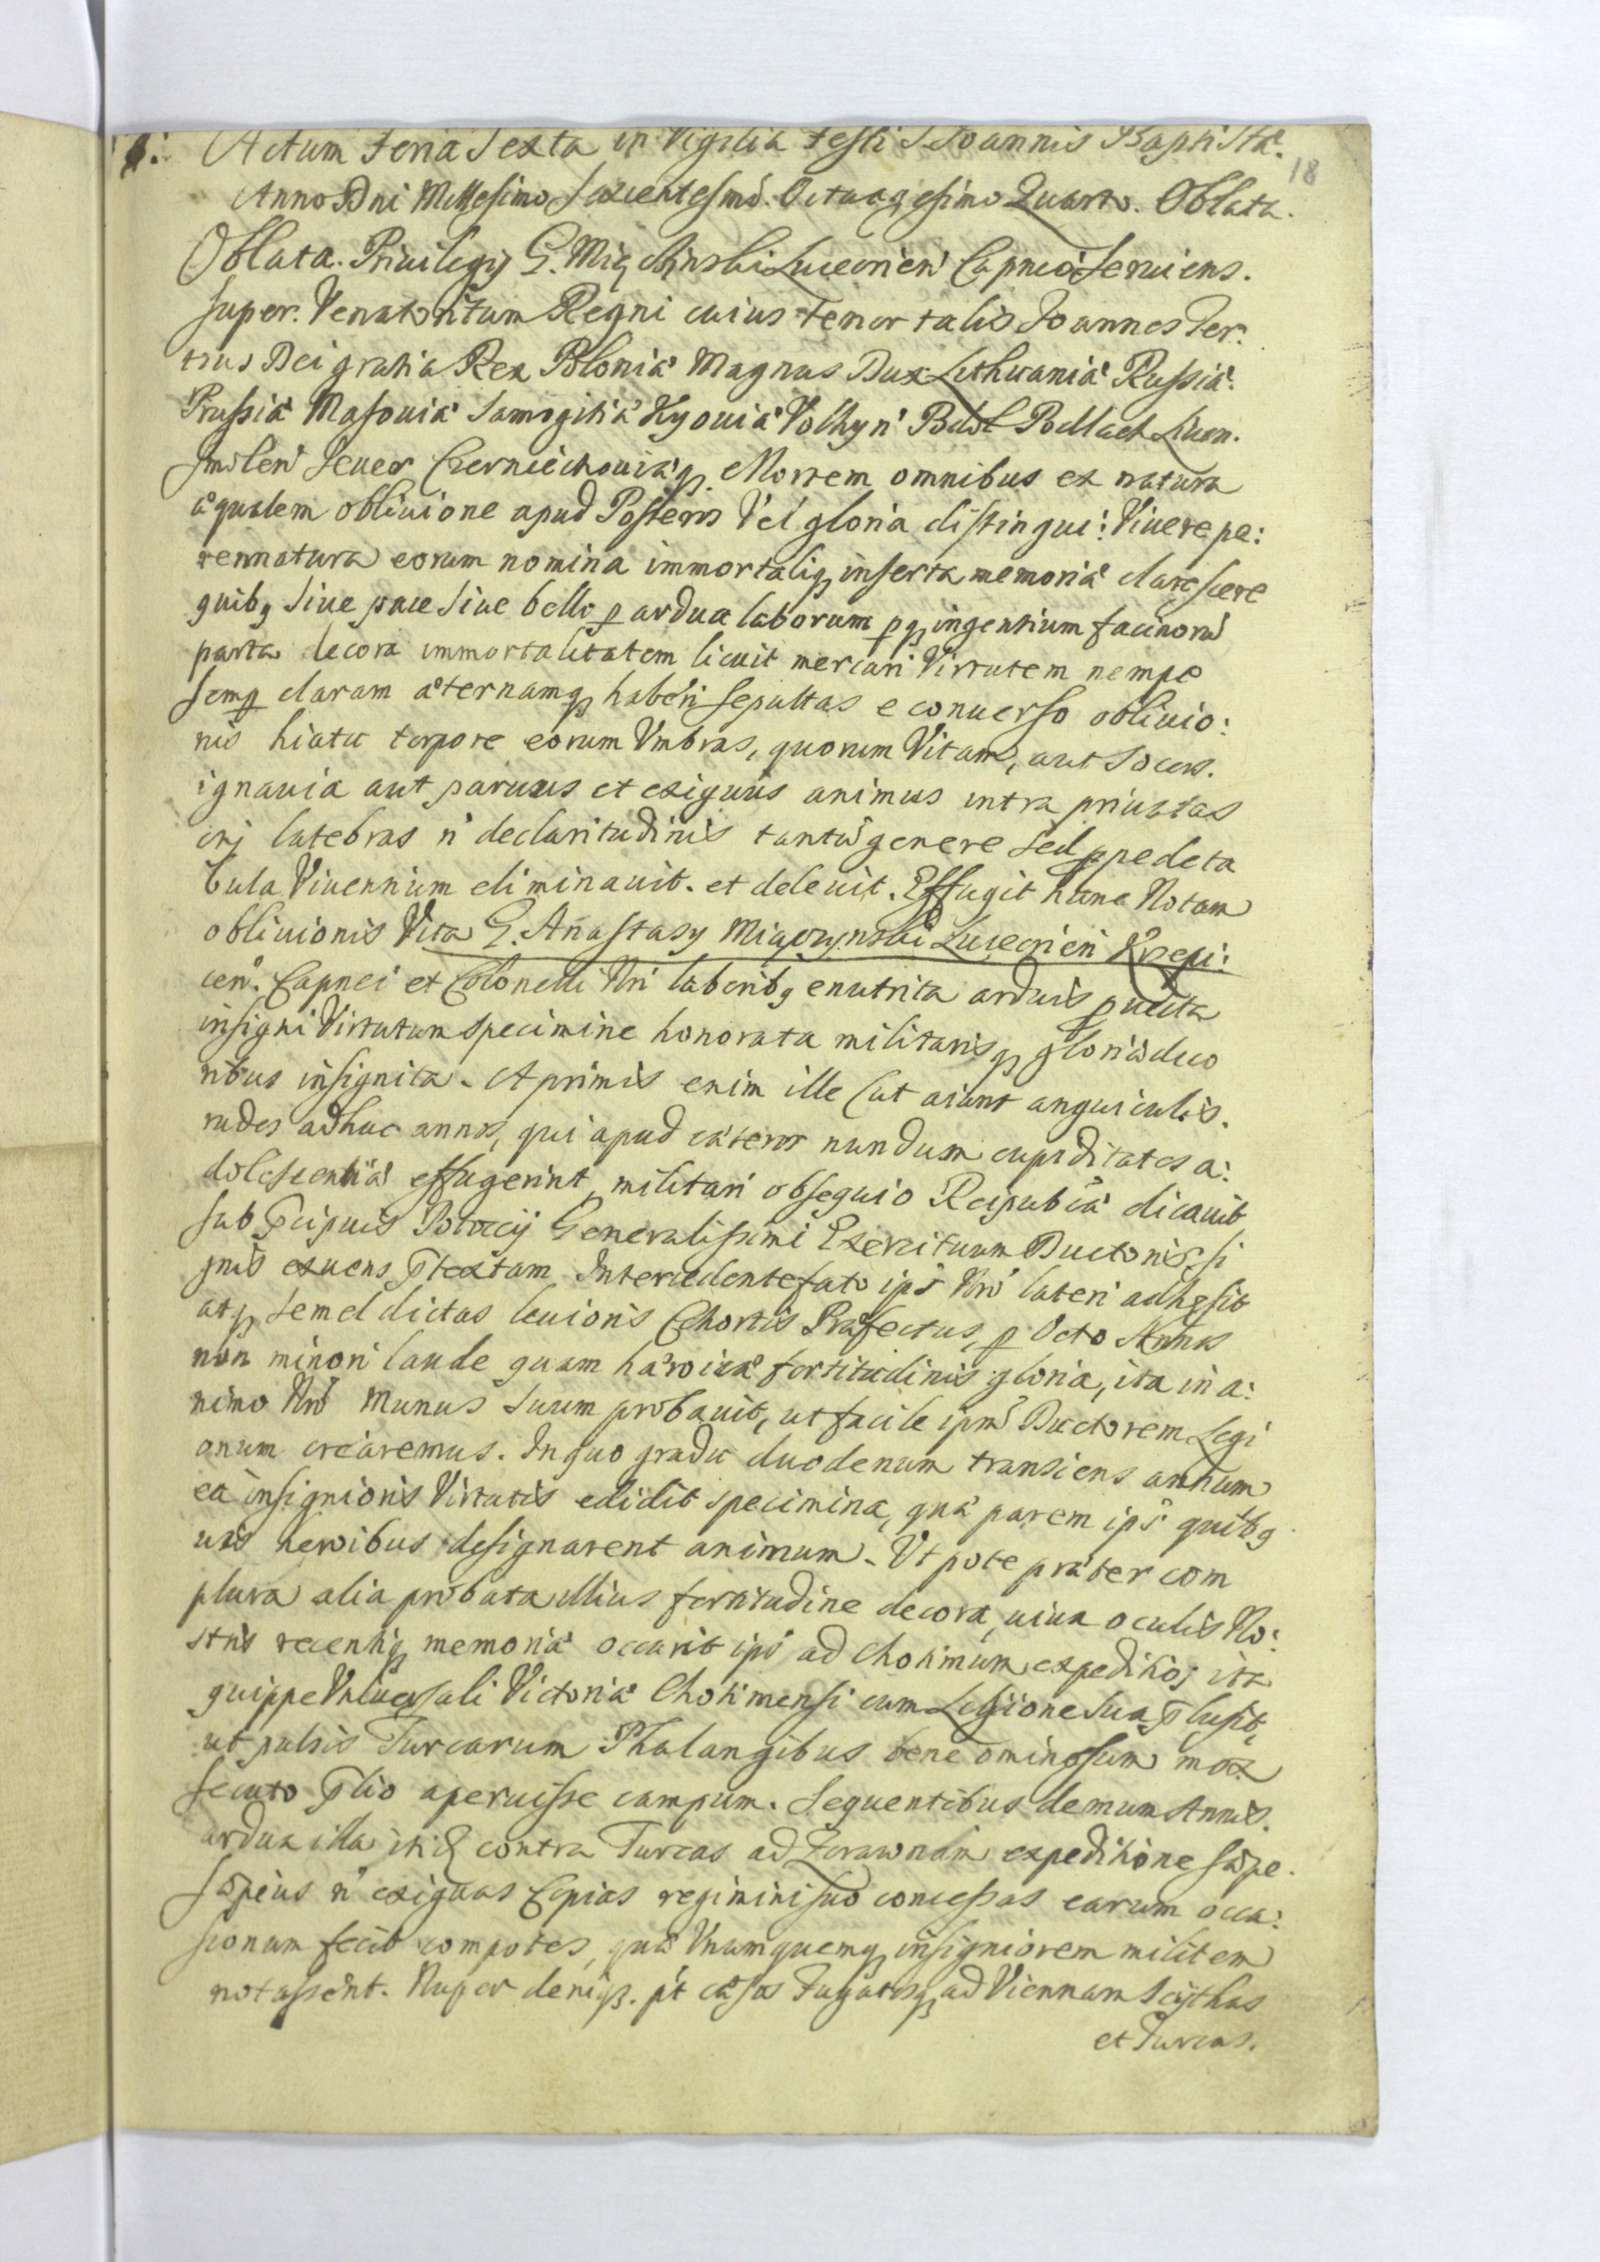 Actum Feria Sexta in Vigilia Festi S Joannis Baptistæ.
18
Anno Dni Millesimo Sexcentesmō. Octuagesimo Quarto. Oblata.
Oblata. Priuilegij G. Miączÿnski Luceorien̄ Capneo Seruiens.
super. Venatoritum Regni cuius tenor talis Joannes Ter:
tius Dei gratia Rex Poloniæ Magnus Dux Lithuaniæ Russiæ.
Prussiæ Masouiæ Samogitiæ Kyouiæ Volhyn̄ Podol Podlach Liuon.
Smolen̄ Seuer Czerniechouiæq̨. Mortem omnibus ex natura
æqualem obliuione apud Posteros Vel gloria distingui: Viuere pe:
rennatura eorum nomina immortaliq̨ inserta memoriæ clarescere
quibq̨ siue pace siue bello p ardua laborum pq̨ ingentium facinorū
parta decora immortalitatem licuit mercari Virtutem nempe
semp claram æternamq̨ haberi sepultas e conuerso obliuio:
nis hiatu torpore eorum Vmbras, quorum Vitam, aut Socors.
ignauia aut paruus et exiguus animus intra priuatas
latebras n̄ declaritudinis tantū genere sed ppe de ta
bula Viuentium eliminauit. et deleuit. Effugit hanc Notam
obliuionis Vita G. Anastasy Miączynski Luceorien̄ Krepi:
cen̄. Capnei et Colonelli Nri laboribq̨ enutrita arduis puecta
insigni Virtutum specimine honorata militarisq̨ gloriæ deco
ribus insignita. A primis enim ille (ut aiunt anguiculis.
rudes adhuc annos, qui apud cæteros nundum cupiditates a:
dolescentiæ effugerint, militari obsequio Reipubcæ dicauit
sub Potocij Generalissimi Exercituum Ductoris, si
gnis exuens ptextam Intercedente fato ips Nrō lateri adhęsit
atq̨ semel dictus leuioris Cohortis Præfectus, p Octo Annos
non minori laude quam hæroicæ fortitudinis gloria, ita in a:
nimo Nrō Munus suum probauit, ut facile ipm̄ Ductorem Legi
onum crearemus. In quo gradu duodenum transiens annum
ea insignioris Virtutis edidit specimina, quæ parem ips quibq̨
uis heroibus designarent animum. Vt pote præter com
plura alia probata illius fortitudine decora, uiua oculis No:
stris recentiq̨ memoriæ occurit ips ad Chotimum expeditio; ita
quippe Vniuersali Victoriæ Chotimensi cum Legione sua plusit,
ut pulsis Turcarum Phalangibus bene ominosum mox
secuto plio aperuisse campum. Sequentibus demum Annis.
ardua illa contra Turcas ad Zorawnam expeditione sæpe.
sæpius n̄ exiguas Copias regimini suo concessas earum occa:
sionum fecit compotes, quæ Vnumquemq̨ insigniorem militem
notassent. Nuper deniq̨. pt cæsos Fugatosq̨ ad Viennam Scÿthas
et Turcas.